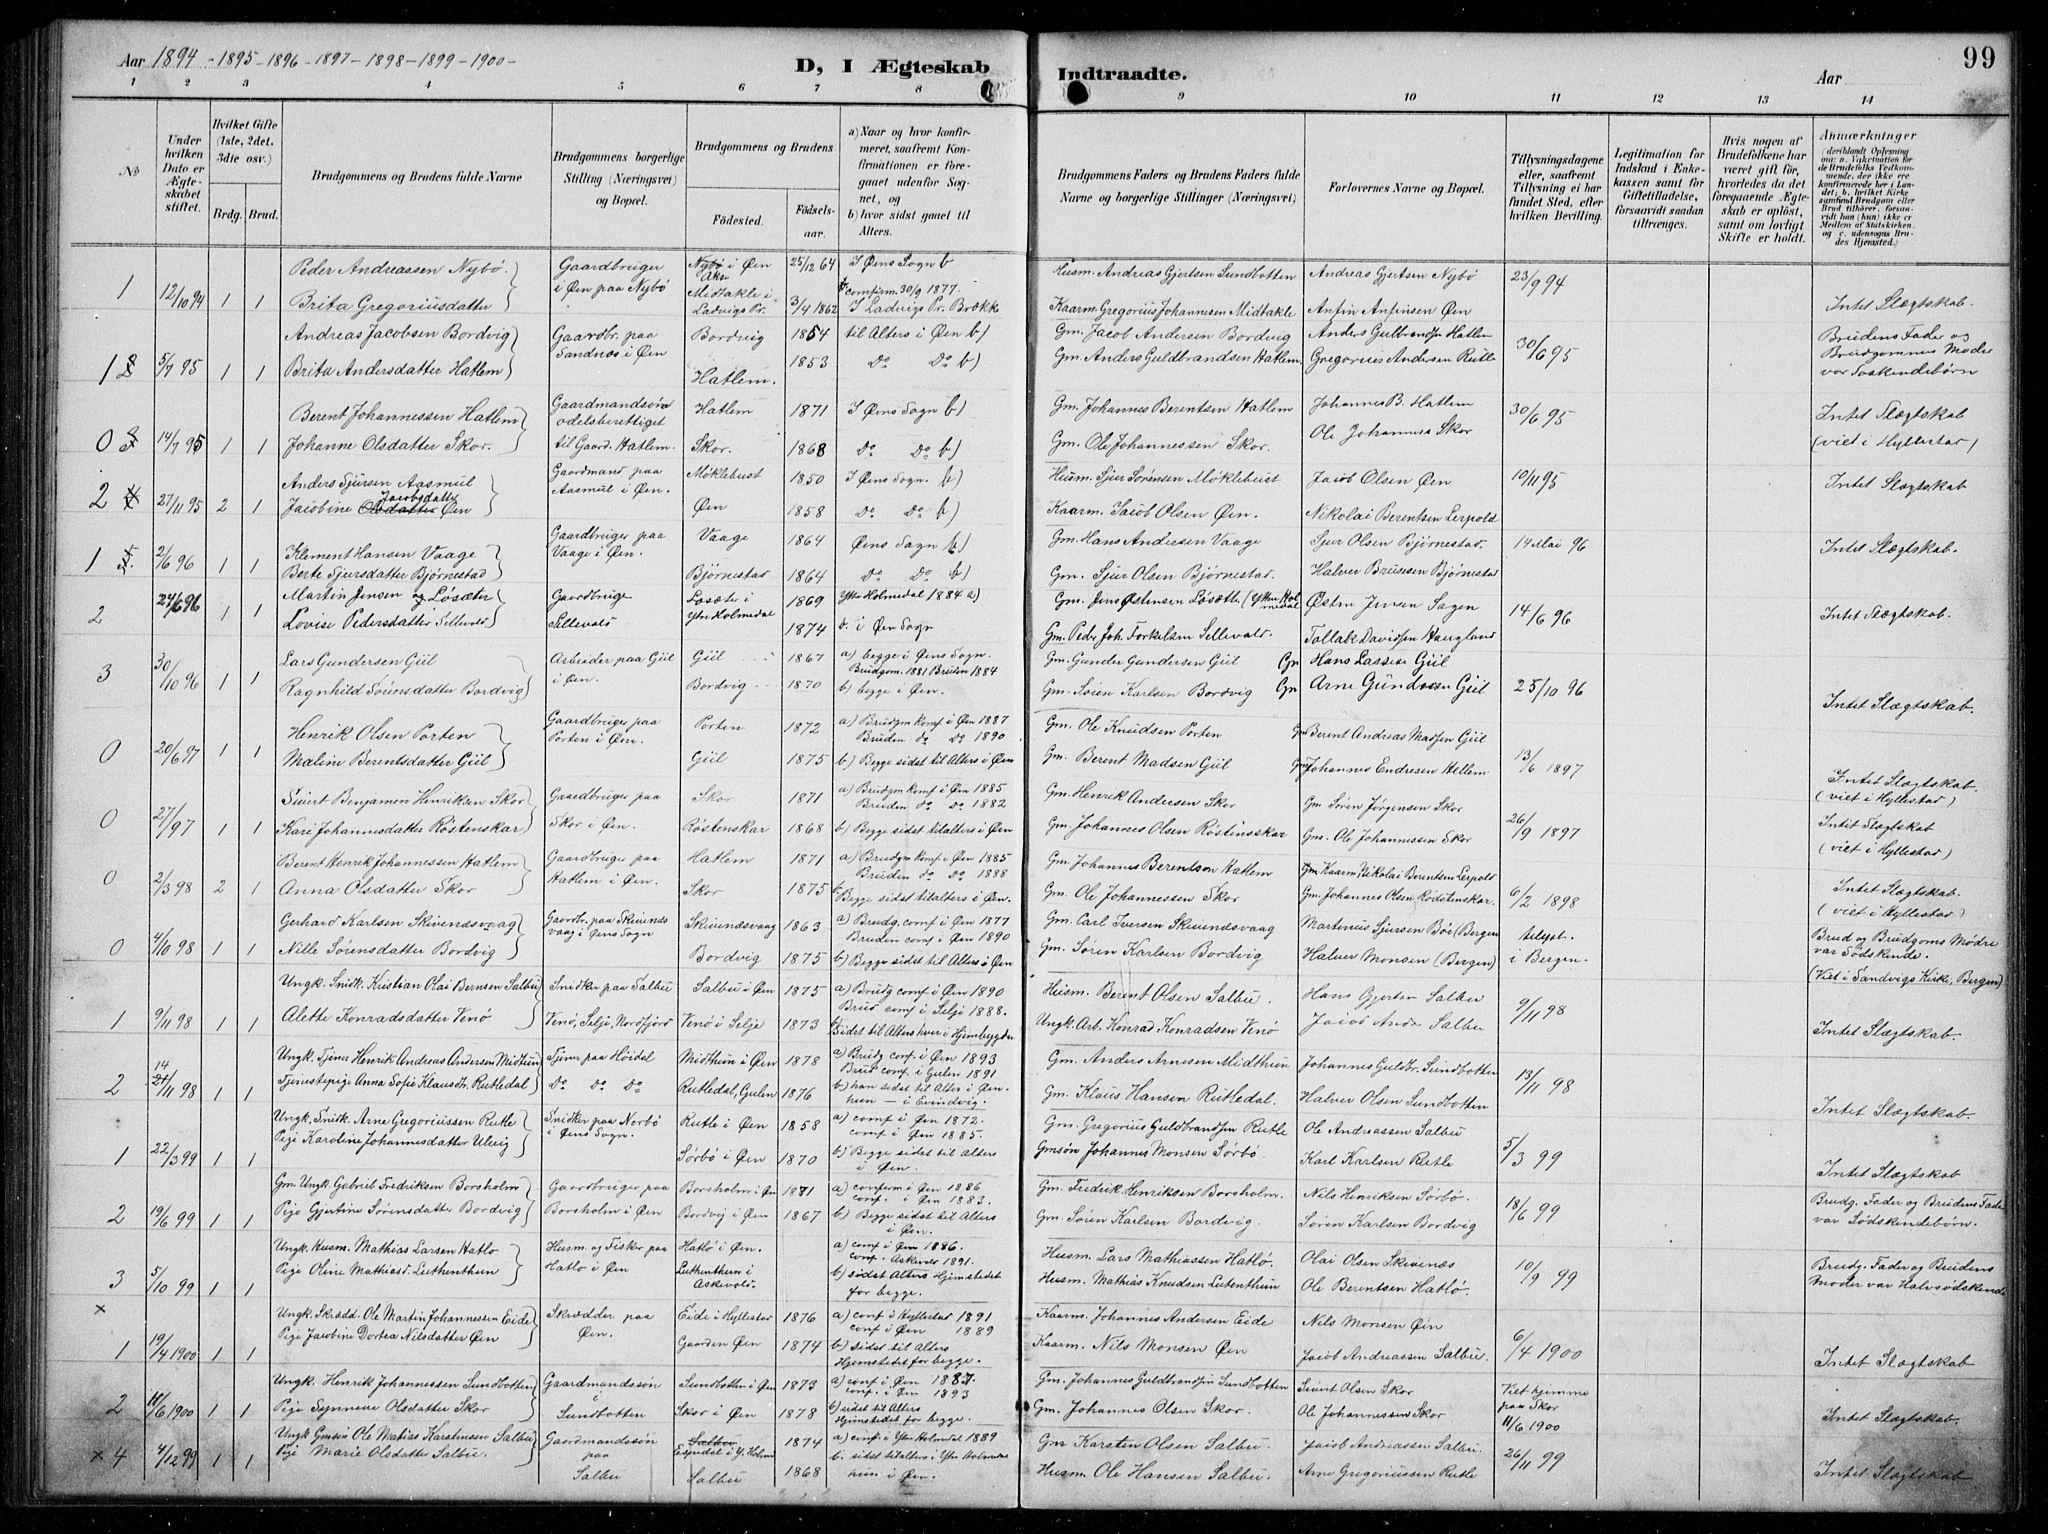 Aar 1894 - 1895 - 1896 - 1897 - 1898 - 1899 - 1900 -
D, I Ægteskab Indtraadte.
99
Aar
1 2 3 4 5 6 7 8 9 10 11 12 13 14
№
Under hvilken Dato er Ægteskabet stiftet.
Hvilket Gifte (1ste, 2det. 3die osv.)
Brdg. Brud.
Brudgommens og Brudens fulde Navne
Brudgommens borgerlige Stilling (Næringsvei) og Bopæl.
Brudgommens og Brudens
Fødested. Fødselsaar.
a) Naar og hvor konfirmeret, saafremt Konfirmationen er foregaaet udenfor Sognet, og
b) hvor sidst gaaet til Alters.
Brudgommens Faders og Brudens Faders fulde Navne og borgerlige Stillinger (Næringsvei)
Forlovernes Navne og Bopæl.
Tillysningsdagene eller, saafremt Tillysning ei har fundet Sted, efter hvilken Bevilling.
Legitimation for Indskud i Enkekassen samt for Giftetilladelse, forsaavidt saadan tiltrænges.
Hvis nogen af Brudefolkene har været gift, hvorledes da det foregaaende Ægteskab er opløst, samt om lovligt Skifte er holdt.
Anmærkninger (deriblandt Oplysning om: a. Vakcination for de Brudefolks Vedkommende, der ikke ere konfirmerede her i Landet; b. hvilket Kirkesamfund Brudgom eller Brud tilhører, forsaavidt han (hun) ikke er Medlem af Statskirken, og c. udensogns Brudes Hjemsted.)
1 12/10 94 1 1 Peder Andreassen Nybø. Gaardbruger i Øen paa Nybø Nybø i Øen 25/12 64 I Øens Sogn b Husm. Andreas Gjertsen Sundbotten Andreas Gjertsen Nybø 23/9 94
Brita Gregoriusdatter Midtakle i Ladvigs Pr. 3/4 1862 confirm. 30/9 1877. I Ladvigs Pr. Brække Kaarm. Gregorius Johannesen Midtakle Anfin Anfinsen Øen Intet Slægtskab.
Andreas Jacobsen Bordvig Gaardbr. paa Sandnæs i Øen Bordvig 1854 til Alters i Øen b) Gm. Jacob Andersen Bordvig Anders Gulbrandsen Hatlem 30/6 95 Brudens Fader og Brudgommes Moder var Søskendebørn
1 5/7 95 1 1 Brita Andersdatter Hatlem Hatlem. 1853 Do Do b) Gm. Anders Guldbrandsen Hatlem Gregorius Andersen Rutle
Berent Johannessen Hatlem Gaardmandssøn odelsberettiget til Gaard. Hatlem. Hatlem 1871 I Øens Sogn b) Gm. Johannes Berentsen Hatlem Johannes B. Hatlem 30/6 95 Intet Slægtskab
0 14/7 95 1 1 Johanne Olsdatter Skor. Skor. 1868 Do Do b) Gm. Ole Johannessen Skor. Ole Johannes Skor (viet i Hyllestad)
Anders Sjursen Aasmul Gaardmand paa Aasmul i Øen. Møklebust 1850 I Øens Sogn. b) Husm. Sjur Sørensen Møklebust Jacob Olsen Øen 10/11 95 Intet Slægtskab
2 27/11 95 2 1 Jacobine Jacobsdatter Øen Øen 1858 Do Do b) Kaarm. Jacob Olsen Øen. Nikolai Berentsen Lerpold
Klement Hansen Vaage Gaardbruger paa Vaage i Øen. Vaage 1864 Øens Sogn b) Gm. Hans Andersen Vaage Sjur Olsen Bjørnestad. 14 Mai 96 Intet Slægtskab.
1 2/6 96 1 1 Berte Sjursdatter Bjørnestad Bjørnestad 1864 Do Do b) Gm. Sjur Olsen Bjørnestad. Halver Brusesen Bjørnestad
Martin Jensen Løsæter Gaardbruge Løsæte i 1869 Ytre Holmedal 1884 a) Gm. Jens Østensen Løsætte (Ytre Holmedal Østen Jensen Sagen 14/6 96 Intet Slægtskab.
2 24/6 96 1 1 Lovise Pedersdatter Sellevold Sellevold Ytre Holmedal 1874 b. i Øen Sogn Gm. Peder Joh. Torkelsen Sellevold. Tollak Davidsen Haugland
Lars Gundersen Giil Arbeider paa Giil i Øen. Giil 1867 a) begge i Øens Sogn. Brudgom. 1881 Bruden 1884 Gm. Gunder Gundersen Giil Gm Hans Lassese Giil
3 30/10 96 1 1 Ragnhild Sørensdatter Bordvig Bordvig 1870 b) begge i Øen. Gm. Søren Karlsen Bordvig Gm Arne Gundersen Giil 25/10 96 Intet Slægtskab.
Henrik Olsen Porten Gaardbruger paa Porten i Øen. Porten 1872 a) Brudgm konf. i Øen 1887 Bruden do Do 1890 Gm. Ole Knudsen Porten Gm Berent Andreas Madsen Giil
0 20/6 97 1 1 Maline Berentsdatter Giil Giil 1875 b) Begge sidst til Alters i Øen Gm. Berent Madsen Giil Gm Johannes Endresen Hellem 13/6 1897 Intet Slægtskab. (viet i Hyllestad)
Sivert Benjamen Henriksen Skor Gaardbruger paa Skor i Øen. Skor 1871 a) Brudgm Konf i Øen 1885 Bruden do do 1882 Gm. Henrik Andersen Skor Gm Søren Jørgensen Skor 26/9 1897 Intet Slægtskab
0 27/ 97 1 1 Kari Johannesdatter Røstenskar Røstenskar 1868 b) Begge sidst tilalters i Øen Gm. Johannes Olsen Røstinsskar Gm. Ole Johannessen Skor (viet i Hyllestad)
Berent Henrik Johannessen Hatlem Gaardbruger paa Hatlem i Øen. Hatlem 1871 a) Brudgm Konf i Øen 1885 Bruden do do 1888 Gm. Johannes Berentsen Hatlem Gm Kaarm. Nikolai Berentsen Lerpold
0 2/3 98 2 1 Anna Olsdatter Skor Skor 1875 b. Begge sidst tilalters i Øen. Gm. Ole Johannessen Skor Gm. Johannes Olsen Rødstenskar. 6/2 1898 Intet Slægtskab. (viet i Hyllestad)
Gerhard Karlsen Skivendsvaag Gaardbr. paa Skivendsvaag i Øens Sogn Skivendsvaag 1863 a) Brudg. comf i Øen 1877 Bruden comf i Øen 1890 Gm. Carl Iversen Skivendsvaag Martenius Sjursen Bøe (Bergen tillyst. i Bergen. Brud og Brudgoms Mødre var Sødskende.
0 4/10 98 1 1 Nille Sørensdatter Bordvig Bordvig 1875 b) Begge sidst til Alters i Øen Gm. Søren Karlsen Bordvig Halver Monsen (Bergen) (Viet i Sandvigs Kirke, Bergen)
Ungk. Snidk. Kristian Olai Bernsen Salbu Snidker paa Salbu Salbu i Øen 1875 a) Brudg comf. i Øen 1890 Husm. Berent Olsen Salbu. Hans Gjertsen Salbu 9/11 98
1 9/11 98 1 1 Alette Konradsdatter Venø Venø, Selje, Nordfjord Venø i Selje 1873 Brud comf i Selje 1888. Sidst til Alters hver i Hjembygden Ungk. Arb. Konrad Konradsen Venø Jacob Andr Salbu Intet Slægtskab.
Ungk. Tjener Henrik Andreas Andersen Midthun Tjener paa Høidal Midthun i Øen 1878 a) Brudg comf. i Øen 1893 Brud comf i Gulen 1891 Gm. Anders Arnesen Midthun Johannes Guldbr. Sundbotten 13/11 98
2 14/11 98 1 1 Tjenestepige Anna Sofie Klausdtr. Rutledal Do Do Do Rutledal, Gulen 1876 b) han sidst til Alters i Øen. hun — i Evindvig. Gm. Klaus Hansen Rutledal. Halver Olsen Sundbotten Intet Slægtskab.
Ungk. Snidk. Arne Gregoriussen Rutle Snidker paa Norbø i Øens Sogn. Rutle i Øen 1858 a) comf i Øen 1872. comf. i Øen 1885. Gm. Gregorius Guldbrandsen Rutle Ole Andreassen Salbu 5/3 99
1 22/3 99 1 1 Pige Karoline Johannesdatter Ulvig Sørbø i Øen 1870 b) Begge sidst til Alters i Øen. Gmsøn Johannes Monsen Sørbø. Karl Karlsen Rutle Intet Slægtskab
Gm. Ungk. Gabriel Fredriksen Borsholm Gaardbruger paa Borsholm i Øen Borsholm i Øen 1871 a) comfirm i Øen 1886 comf. i Øen 1883. Gm. Fredrik Henriksen Borsholm. Nils Henriksen Sørbø. 18/6 99 Brudg. Fader og Brudens Fader var Sødskendebørn.
2 19/6 99 1 1 Pige Gjertine Sørensdatter Bordvig Bordvig i Øen 1867 b) Begge sidst til Alters i Øen. Gm. Søren Karlsen Bordvig. Søren Karlsen Bordvig
Ungk. Husm. Mathias Larsen Hatlø Husm. og Fisker paa Hatlø i Øen Hatlø i Øen. a) comf i Øen 1886. comf. Askevold 1891. Husm. Lars Mathiassen Hatlø. Olai Olsen Skivenæs 10/9 99 Brudg. Fader og Brudens Moder var Halvsødskende
3 5/10 99 1 1 Pige Oline Mathiasd. Luthenthun Luthenthun i Askevold. b) sidst Alters Hjemstedet for begge. Husm. Mathias Knudsen Lutenthun Ole Berentsen Hatlø.
x Ungk. Skrædd. Ole Martin Johannessen Eide Skrædder paa Øen. Eide i Hyllestad 1876 a) comf i Hyllestad 1891 comf i Øen 1889 Kaarm. Johannes Andersen Eide Nils Monsen Øen 6/4 1900
1 19/4 1900 1 1 Pige Jacobine Dortea Nilsdatter Øen Gaarden Øen 1874 b) sidst til Alters Hjemstedet for begge. Kaarm. Nils Monsen Øen Jacob Andreassen Salbu. Intet Slægtskab
Ungk. Henrik Johannessen Sundbotten Gaardmandssøn i Sundbotten Sundbotten i Øen 1873 a) comf i Øen 1887. comf. i Øen 1893 Gm. Johannes Guldbrandsen Sundbotten Sivert Olsen Skor Viet hjemme paa Skor 11/6 1900
2 11/6 1900 1 1 Pige Synneve Olsdatter Skor Skor i Øen 1878 b) sidst til Alters Hjemstedet for begge. Gm. Johannes Olsen Skor. Ole Johannessen Skor Intet Slægtskab.
Ungk Gmsøn Ole Matias Karstensen Salbu Gaardmandssøn paa Salbu Espedal i Y. Holm 1874 a) comf. i Ytre Holmedal 1889 Gm Karsten Olsen Salbu. Jacob Andreassen Salbu. 26/11 99
x 4 4/12 99 1 1 Pige Marie Olsdatter Salbu. Salbu 1868 b. sidst tilalters i Ytre Holmedal hun i Øen. Husm. Ole Hansen Salbu. Arne Gregoriussen Rutle Intet Slægtskab